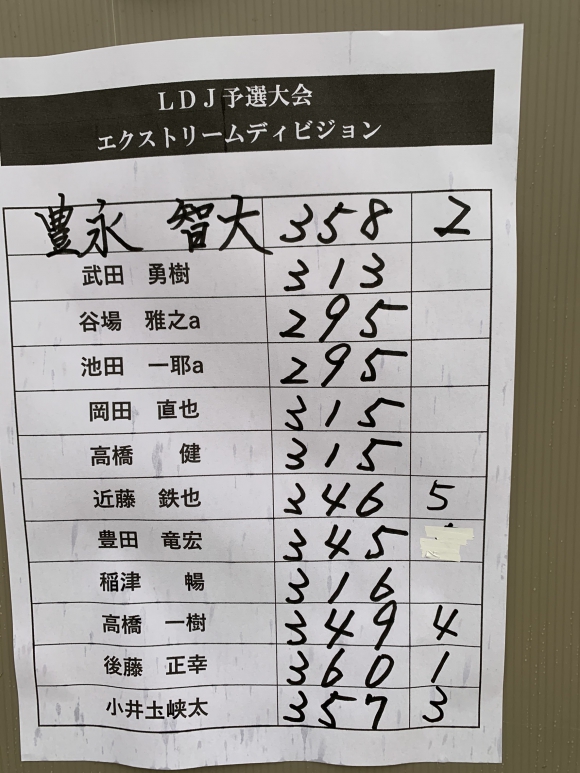 LDJ予選大会
エクストリームディビジョン
豊永 智大 358 2
武田 勇樹 313
谷場 雅之a 295
池田 一耶a 295
岡田 直也 315
高橋 健 315
近藤 鉄也 346 5
豊田 竜宏 345
稲津 暢 316
高橋 一樹 349 4
後藤 正幸 360 1
小井圡峡太 357 3